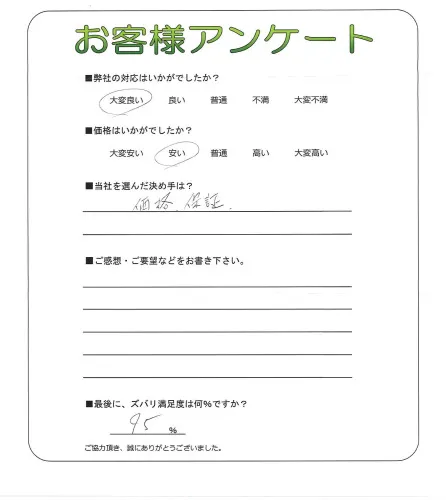 お客様アンケート
■弊社の対応はいかがでしたか？
大変良い 良い 普通 不満 大変不満
■価格はいかがでしたか？
大変安い 安い 普通 高い 大変高い
■当社を選んだ決め手は？
価格、保証.
■ご感想・ご要望などをお書き下さい。
■最後に、ズバリ満足度は何%ですか？
95 %
ご協力頂き、誠にありがとうございました。